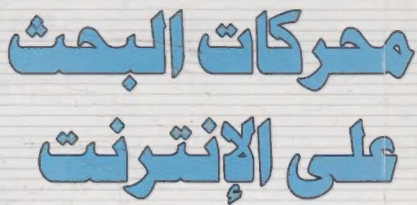 محركات البحث
على الإنترنت